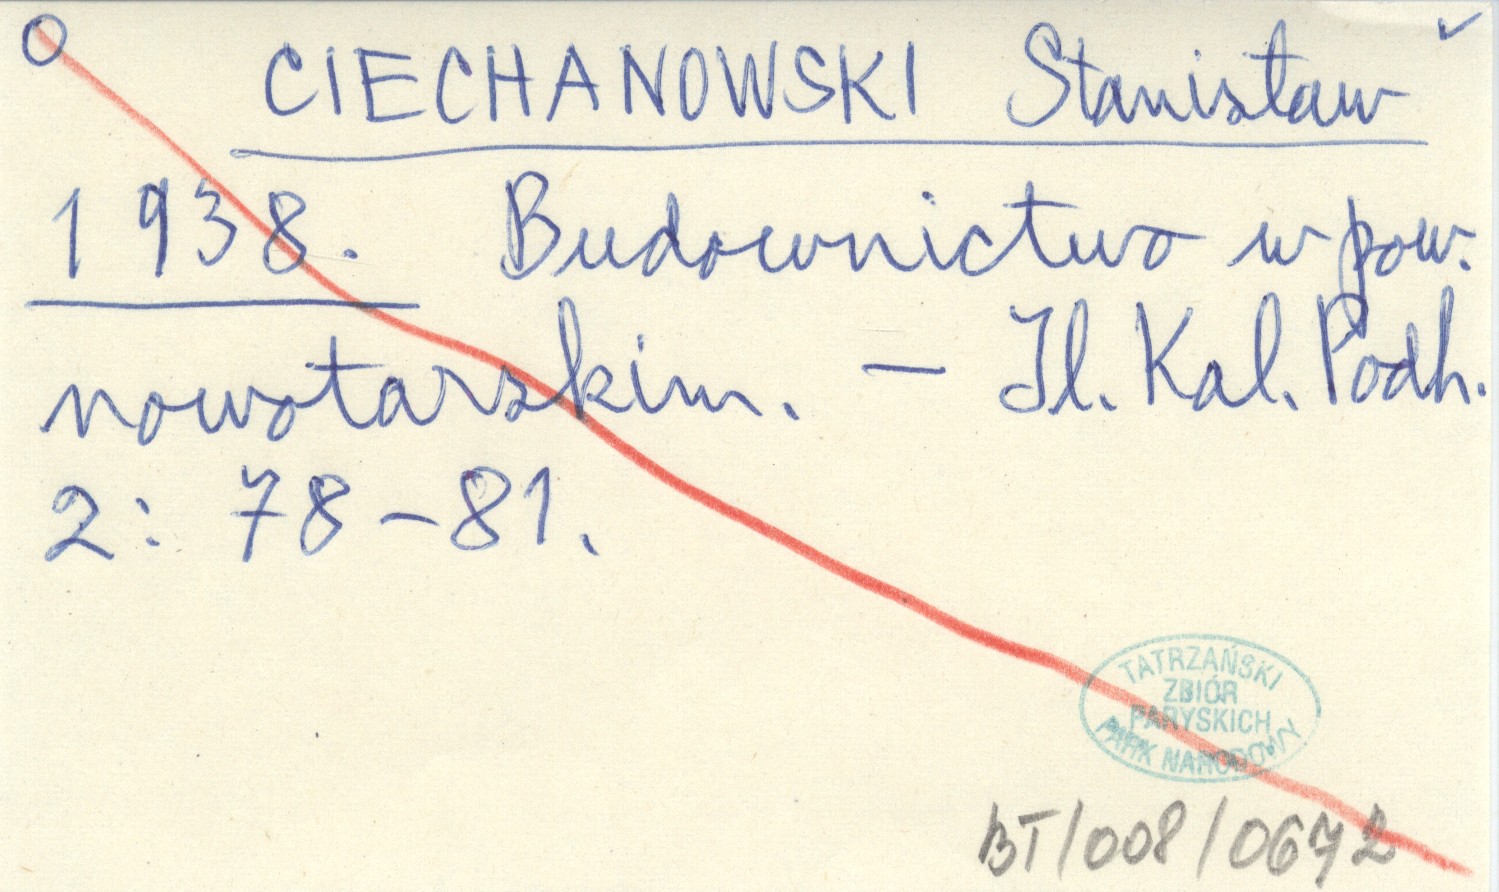 CIECHANOWSKI Stanisław
1938. Budownictwo w pow.
nowotarskim. — Il. Kal. Podh.
2: 78-81.
TATRZAŃSKI
ZBIÓR
PARYSKICH
PARK NARODOWY
BT/008/0672